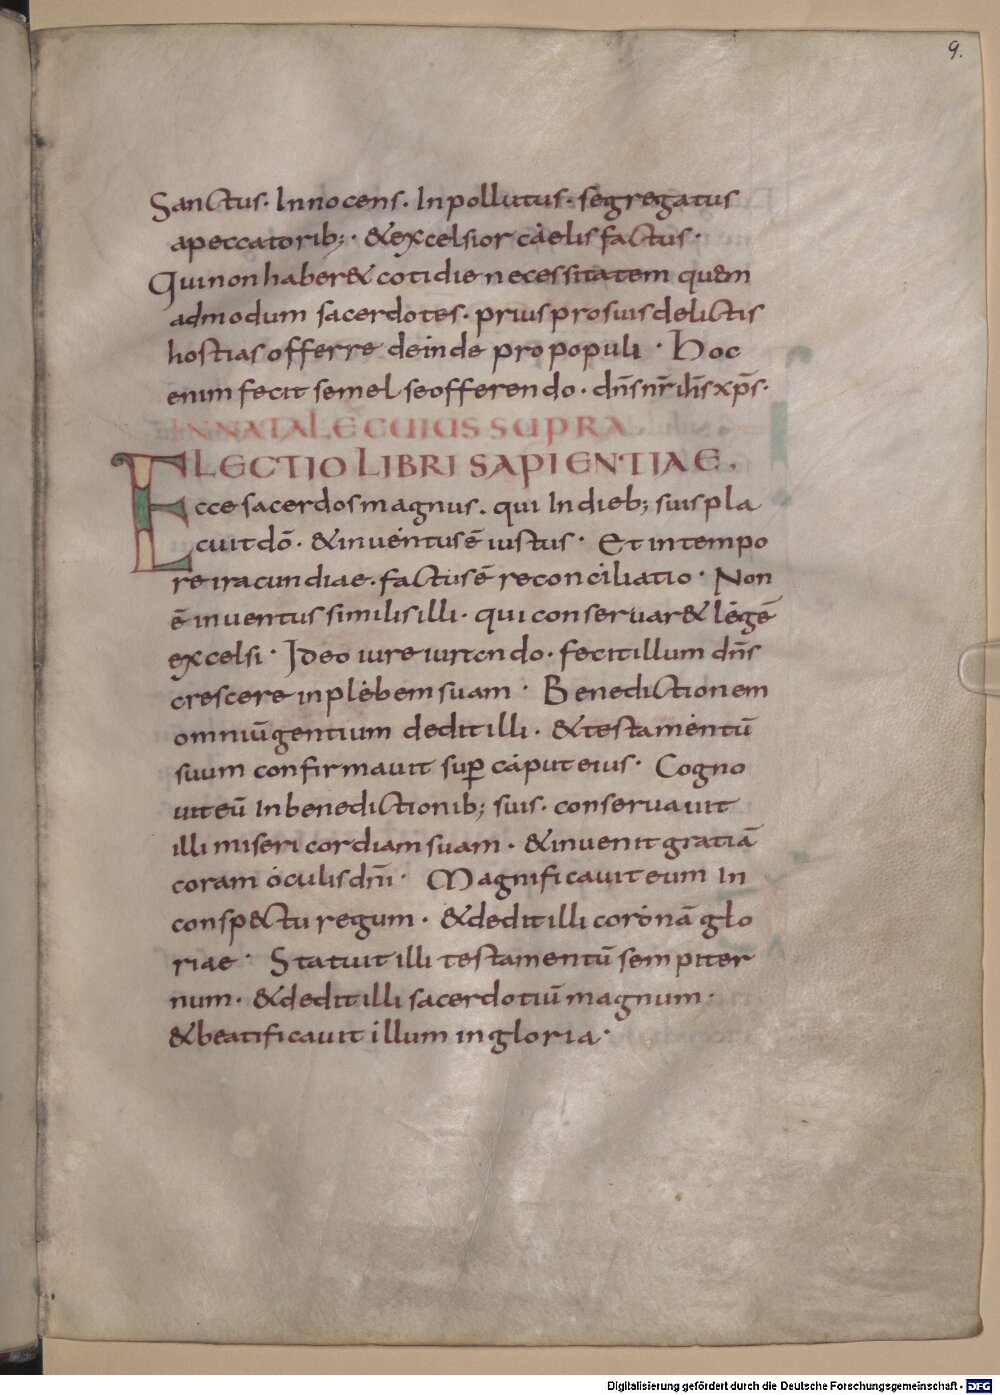 9.
Sanctus · Innocens · Inpollutus · segregatus
apeccatorib; · &excelsior caelis factus ·
Quinonhaber& cotidie necessitatem quem
admodum sacerdotes · priusprosuisdelictis
hostias offerre deinde pro populi · Hoc
enim fecit semel seofferendo · dn̄s nr̄ ih̄s xp̄s ·
IN NATALE CUIUS SUPRA
LECTIO LIBRI SAPIENTIAE .
Ecce sacerdos magnus . qui In dieb; suis pla
cuit dō · &inuentus ē iustus · Et intempo
re iracundiae · factus ē reconciliatio · Non
ē inuentus similis illi · qui conseruar& legē
excelsi · Ideo iureiurando · fecit illum dn̄s
crescere inplebem suam · Benedictionem
omniū gentium dedit illi · &testamentū
suum confirmauit sup̄ caput eius · Cogno
uit eū In benedictionib; suis · conseruauit
illi misericordiam suam · &inuenit gratiā
coram oculis dn̄i · Magnificauit eum In
consp&ctu regum · &dedit illi coronā glo
riae · Statuit illi testamentū sempiter
num · &dedit illi sacerdotiū magnum ·
&beatificauit illum in gloria ·
Digitalisierung gefördert durch die Deutsche Forschungsgemeinschaft - DFG